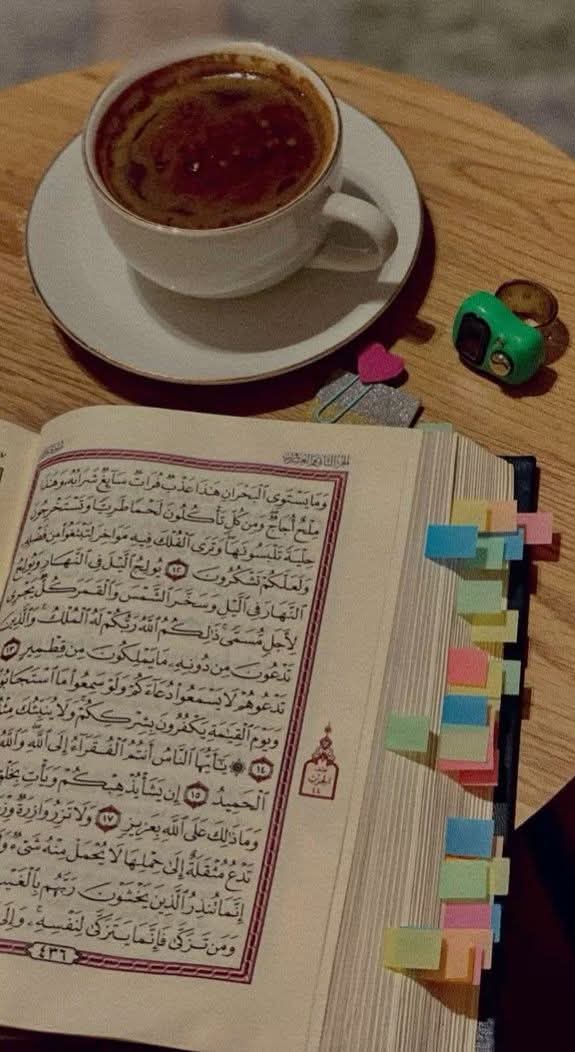 الجزء الثاني والعشرون
وَمَا يَسْتَوِي ٱلْبَحْرَانِ هَٰذَا عَذْبٌ فُرَاتٌ سَآئِغٌ شَرَابُهُۥ وَهَٰذَا
مِلْحٌ أُجَاجٌ وَمِن كُلٍّ تَأْكُلُونَ لَحْمًا طَرِيًّا وَتَسْتَخْرِجُونَ
حِلْيَةً تَلْبَسُونَهَا وَتَرَى ٱلْفُلْكَ فِيهِ مَوَاخِرَ لِتَبْتَغُوا۟ مِن فَضْلِهِۦ
وَلَعَلَّكُمْ تَشْكُرُونَ ١٢ يُولِجُ ٱلَّيْلَ فِي ٱلنَّهَارِ وَيُولِجُ
ٱلنَّهَارَ فِي ٱلَّيْلِ وَسَخَّرَ ٱلشَّمْسَ وَٱلْقَمَرَ كُلٌّ يَجْرِي
لِأَجَلٍ مُّسَمًّى ذَٰلِكُمُ ٱللَّهُ رَبُّكُمْ لَهُ ٱلْمُلْكُ وَٱلَّذِينَ
تَدْعُونَ مِن دُونِهِۦ مَا يَمْلِكُونَ مِن قِطْمِيرٍ ١٣
تَدْعُوهُمْ لَا يَسْمَعُوا۟ دُعَآءَكُمْ وَلَوْ سَمِعُوا۟ مَا ٱسْتَجَابُوا۟
وَيَوْمَ ٱلْقِيَٰمَةِ يَكْفُرُونَ بِشِرْكِكُمْ وَلَا يُنَبِّئُكَ مِثْلُ
١٤ ۞ يَٰٓأَيُّهَا ٱلنَّاسُ أَنتُمُ ٱلْفُقَرَآءُ إِلَى ٱللَّهِ وَٱللَّهُ
ٱلْحَمِيدُ ١٥ إِن يَشَأْ يُذْهِبْكُمْ وَيَأْتِ بِخَلْقٍ
وَمَا ذَٰلِكَ عَلَى ٱللَّهِ بِعَزِيزٍ ١٧ وَلَا تَزِرُ وَازِرَةٌ وِزْرَ
تَدْعُ مُثْقَلَةٌ إِلَىٰ حِمْلِهَا لَا يُحْمَلْ مِنْهُ شَيْءٌ
إِنَّمَا تُنذِرُ ٱلَّذِينَ يَخْشَوْنَ رَبَّهُم بِٱلْغَيْبِ
وَمَن تَزَكَّىٰ فَإِنَّمَا يَتَزَكَّىٰ لِنَفْسِهِۦ وَإِلَى
٤٣٦
الحزب
٤٤